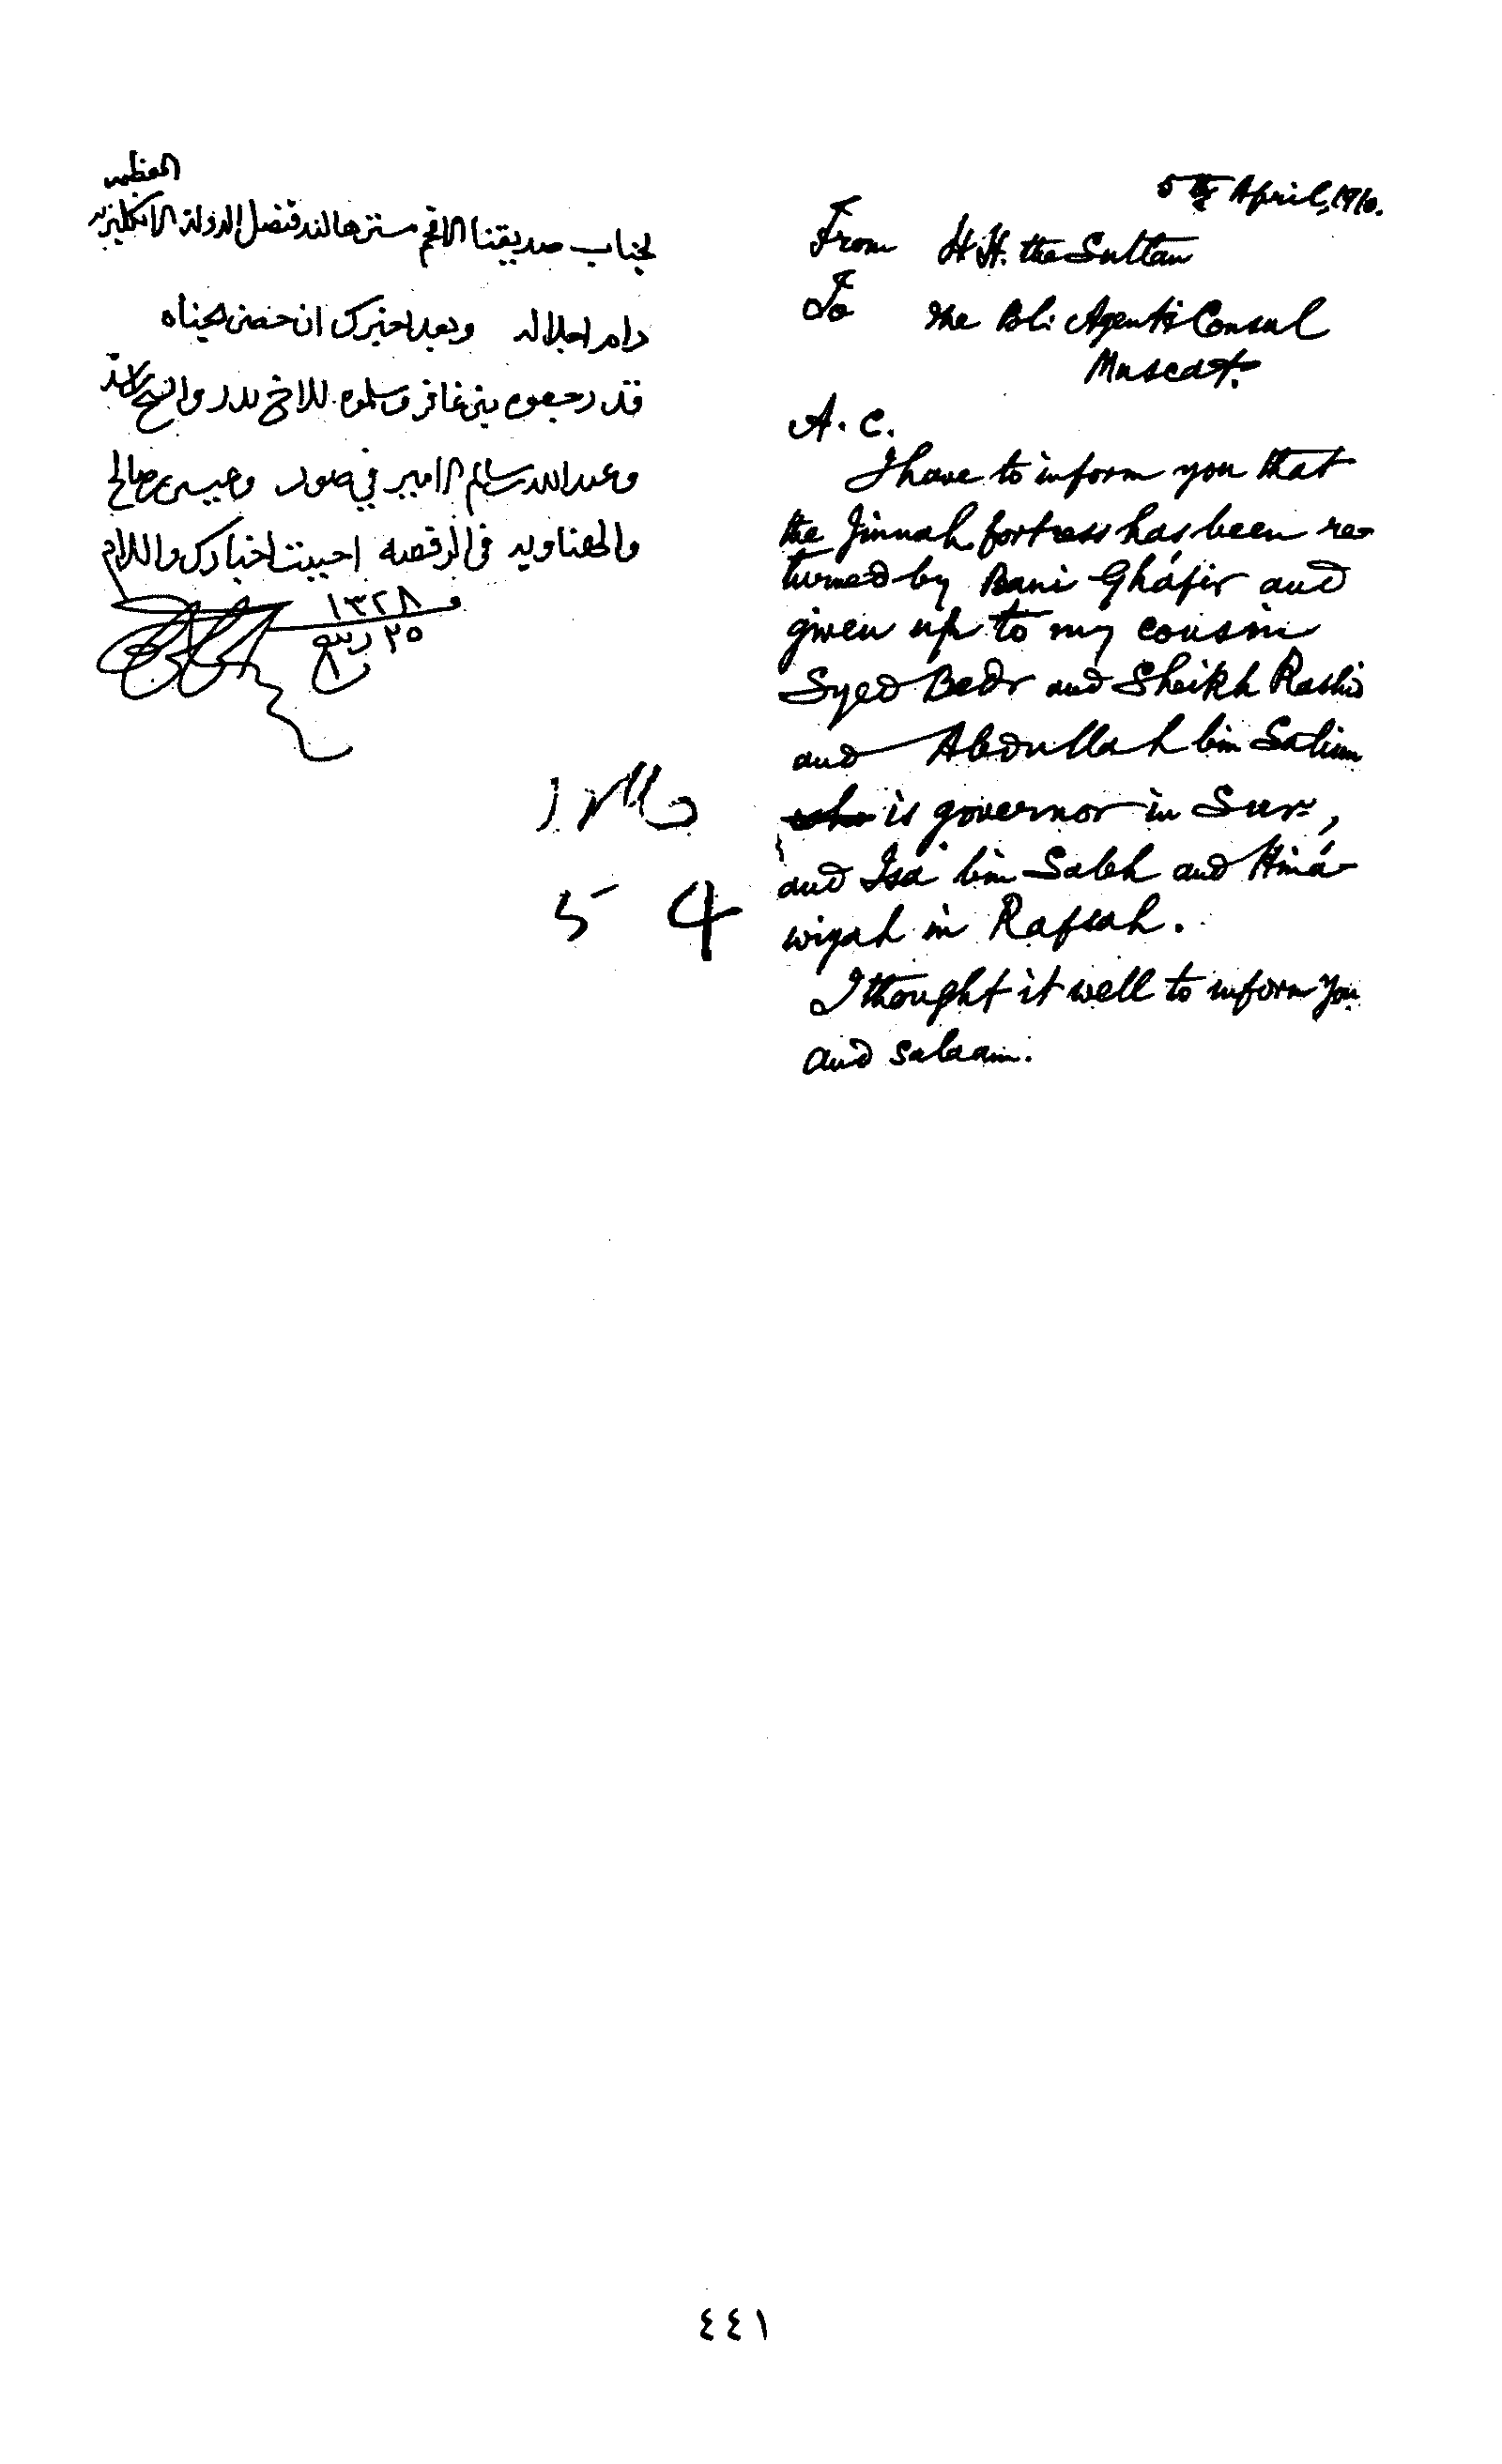 المعظم
لجناب صديقنا الافخم مستر هالند قنصل الدولة الانكليزيه
دام اجلاله وبعد اخبرك ان حصن الجناه
قد رجعوه بني غافر وسلموه للاخ بدر والشيخ راشد
وعبدالله بن سالم الامير في صور وعيسى بن صالح
والهناويه في الرفصه احببت اخبارك والسلام
١٣٢٨
٢٥ ربيع
5 4
5th April, 1910.
From H.H. the Sultan
To the Pol: Agent & Consul
Muscat.
A.C.
I have to inform you that
the Jinnah fortress has been re-
turned by Bani Gháfir and
given up to my cousin
Syed Bedr and Sheikh Rashid
and Abdullah bin Salim
who is governor in Sur,
and Isa bin Saleh and Hiná-
wiyah in Rafsah.
I thought it well to inform you
and salaam.
٤٤١